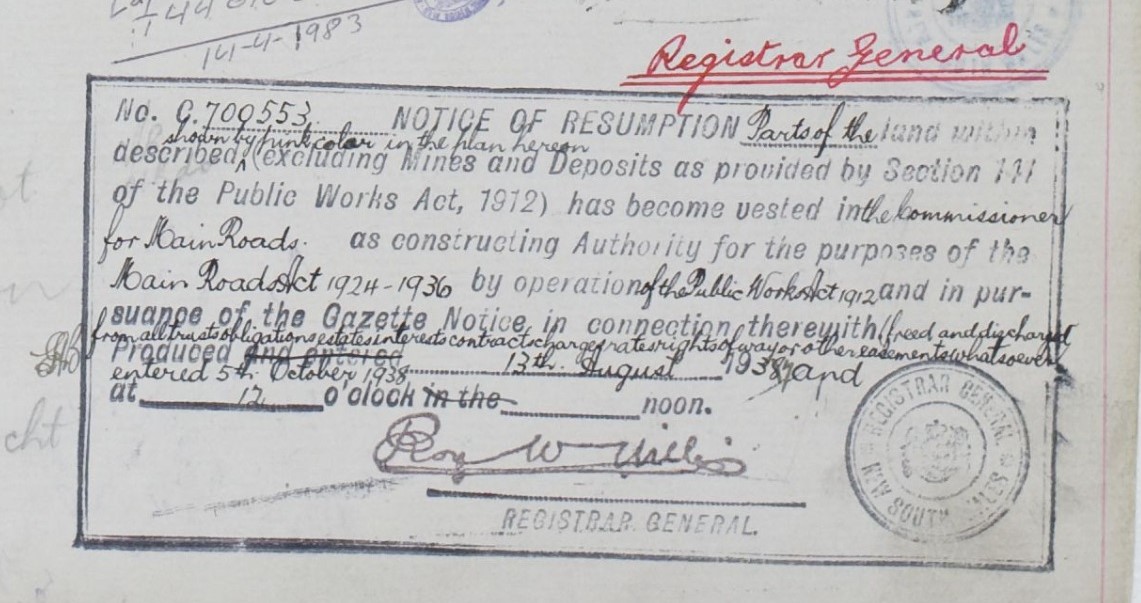 14-4-1983
Registrar General
No. C.700553 NOTICE OF RESUMPTION Parts of the land within
shown by pink color in the plan hereon
described (excluding Mines and Deposits as provided by Section 141
of the Public Works Act, 1912) has become vested in the Commissioner
for Main Roads. as constructing Authority for the purposes of the
Main Roads Act 1924-1936 by operation of the Public Works Act 1912 and in pur-
suance of the Gazette Notice in connection therewith (freed and discharged
from all trusts obligations estates interests contracts charges rates rights of way or other easements whatsoever)
Produced and entered 13th. August 1937 and
entered 5th. October 1938
at 12 o'clock in the noon.
Roy W Willis
REGISTRAR GENERAL.
REGISTRAR GENERAL
NEW SOUTH WALES